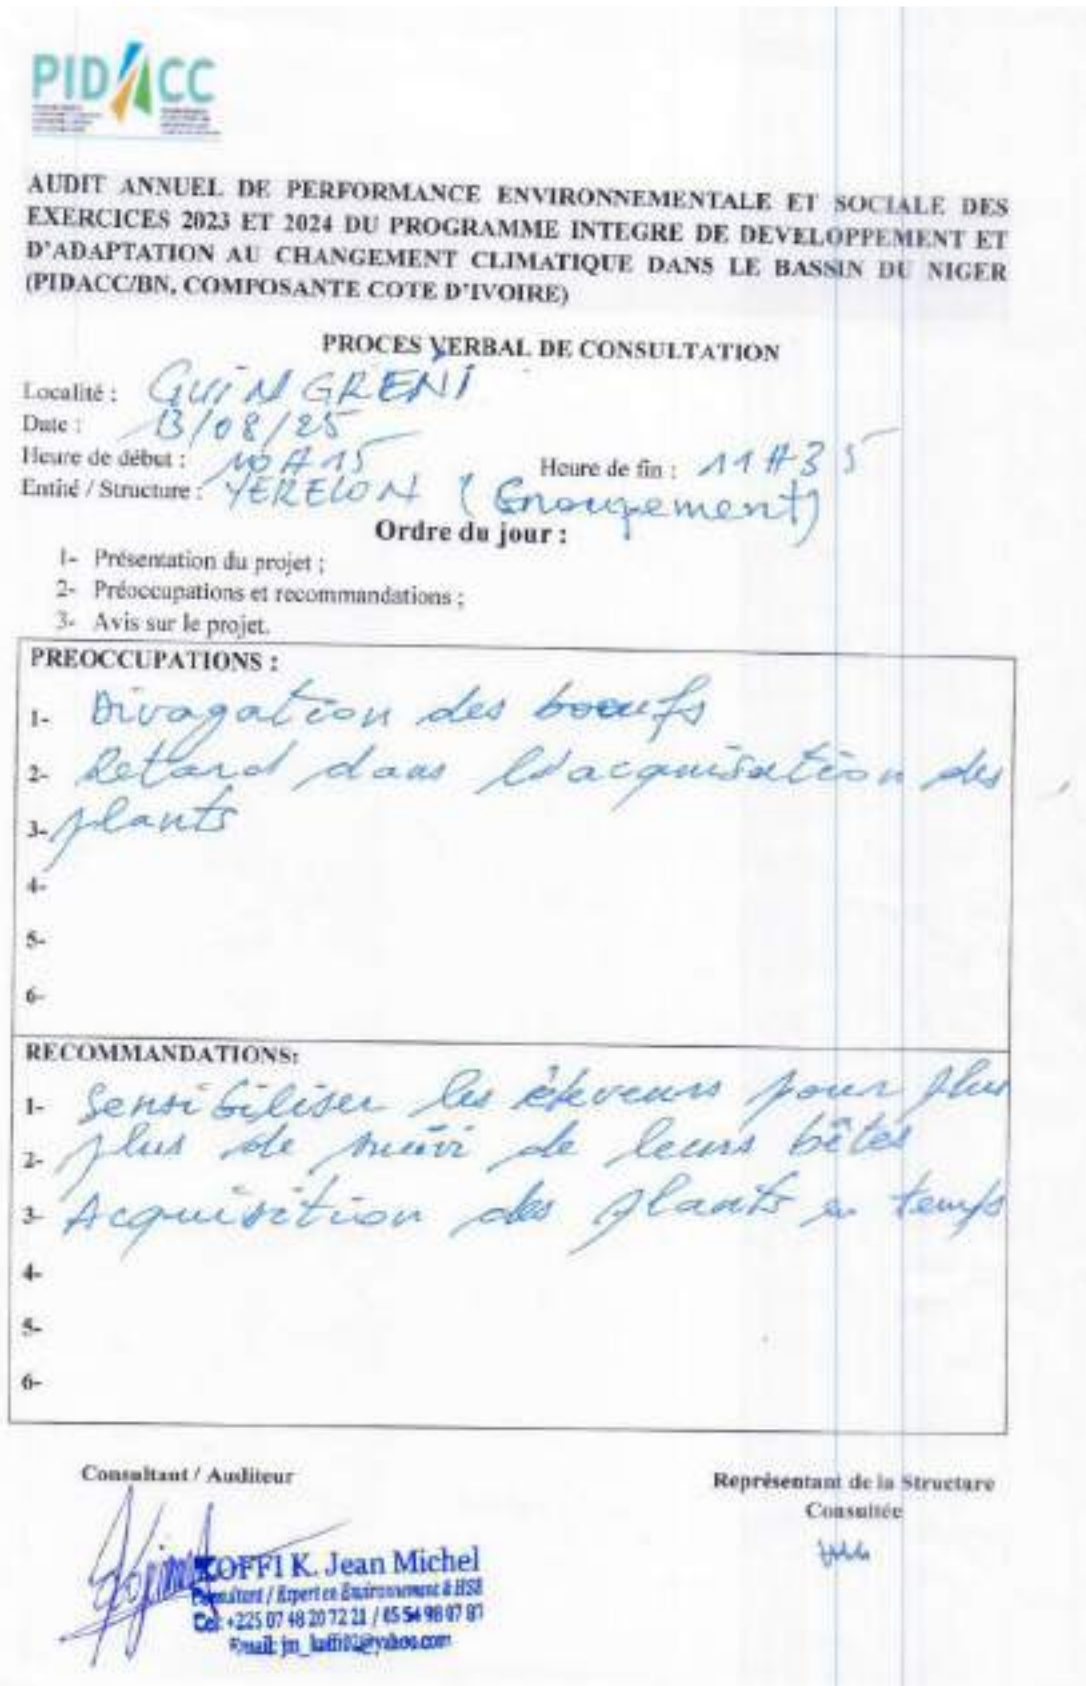 PIDACC
AUDIT ANNUEL DE PERFORMANCE ENVIRONNEMENTALE ET SOCIALE DES
EXERCICES 2023 ET 2024 DU PROGRAMME INTEGRE DE DEVELOPPEMENT ET
D'ADAPTATION AU CHANGEMENT CLIMATIQUE DANS LE BASSIN DU NIGER
(PIDACC/BN, COMPOSANTE COTE D'IVOIRE)
PROCES VERBAL DE CONSULTATION
Localité : GUINGRENI
Date : 13/08/25
Heure de début : 10H15 Heure de fin : 11H35
Entité / Structure : YERELON (Groupement)
Ordre du jour :
1- Présentation du projet ;
2- Préoccupations et recommandations ;
3- Avis sur le projet.
PREOCCUPATIONS :
1- Divagation des boeufs
2- Retard dans l'acquisition des
3- plants
4-
5-
6-
RECOMMANDATIONS:
1- Sensibiliser les éleveurs pour plus
2- plus de suivi de leurs bêtes
3- Acquisition des plants à temps
4-
5-
6-
Consultant / Auditeur
Représentant de la Structure
Consultée
KOFFI K. Jean Michel
Consultant / Expert en Environnement & HSE
Cel: +225 07 48 20 72 21 / 05 54 98 07 87
Email: